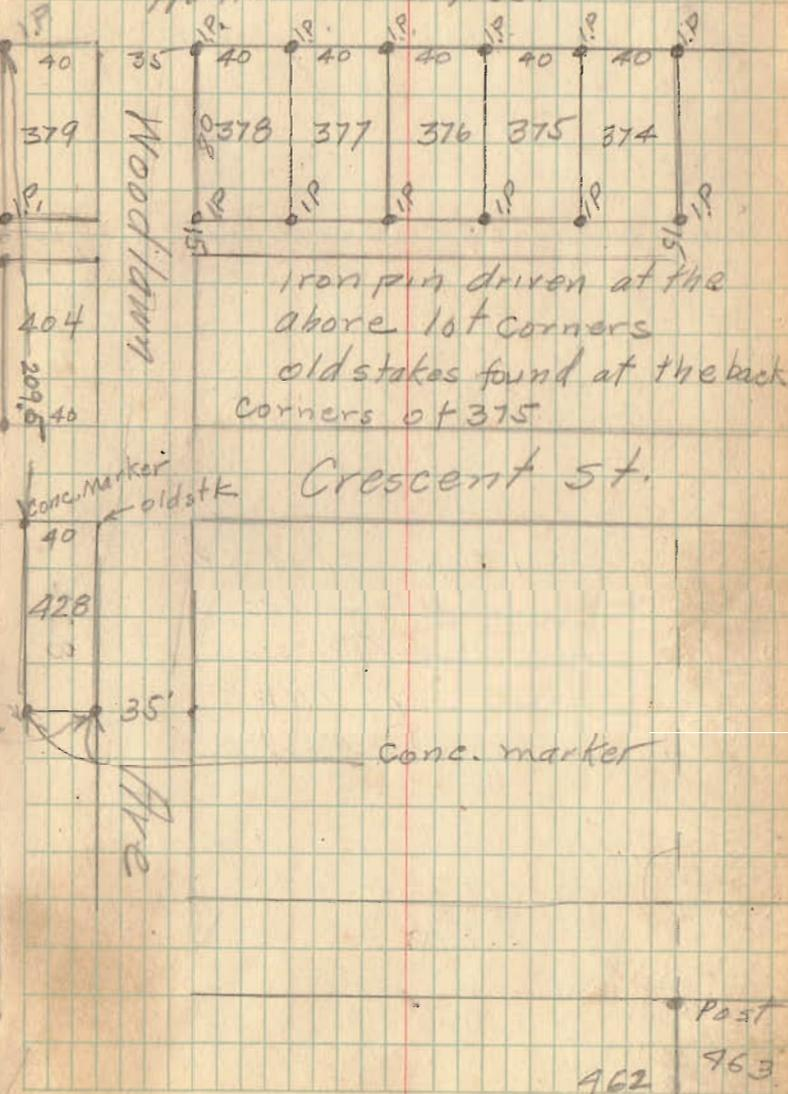 I.P. I.P. I.P. I.P. I.P. I.P. I.P.
40 35 40 40 40 40 40
379 80 378 377 376 375 374
I.P. I.P. I.P. I.P. I.P. I.P.
15 15
Woodlawn
Iron pin driven at the
above lot corners
old stakes found at the back
corners of 375
404
209.5
40
Crescent St.
Conc. Marker
old stk
40
428
35'
Conc. marker
Ave
Post
462 463